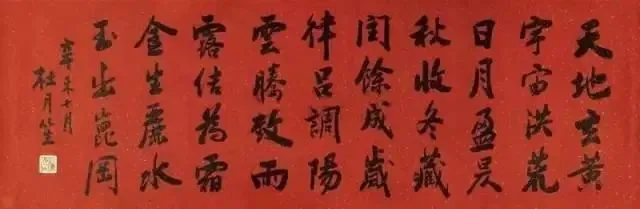 天地玄黃
宇宙洪荒
日月盈昃
秋收冬藏
閏餘成歲
律呂調陽
雲騰致雨
露結為霜
金生麗水
玉出崑岡
辛未十月
杜月笙